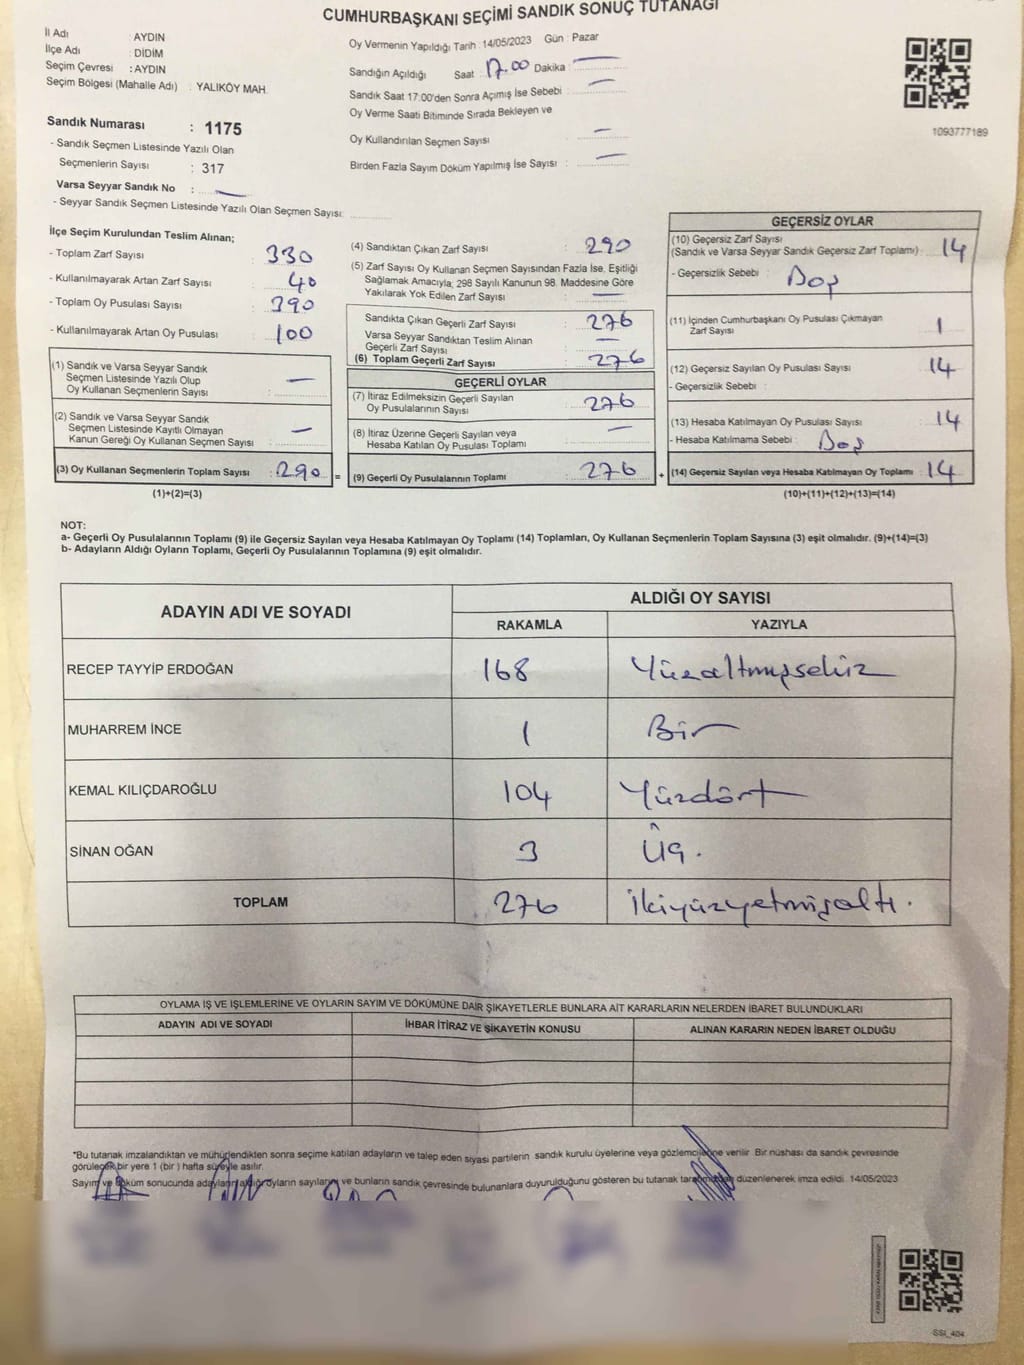 CUMHURBAŞKANI SEÇİMİ SANDIK SONUÇ TUTANAĞI
İl Adı : AYDIN
İlçe Adı : DİDİM
Seçim Çevresi : AYDIN
Seçim Bölgesi (Mahalle Adı) : YALIKÖY MAH.
Sandık Numarası : 1175
- Sandık Seçmen Listesinde Yazılı Olan
Seçmenlerin Sayısı : 317
Varsa Seyyar Sandık No : —
- Seyyar Sandık Seçmen Listesinde Yazılı Olan Seçmen Sayısı:
Oy Vermenin Yapıldığı Tarih : 14/05/2023 Gün : Pazar
Sandığın Açıldığı Saat : 17.00 Dakika : —
Sandık Saat 17:00'den Sonra Açımış İse Sebebi : —
Oy Verme Saati Bitiminde Sırada Bekleyen ve
Oy Kullandırılan Seçmen Sayısı : —
Birden Fazla Sayım Döküm Yapılmış İse Sayısı : —
1093777189
İlçe Seçim Kurulundan Teslim Alınan;
- Toplam Zarf Sayısı : 330
- Kullanılmayarak Artan Zarf Sayısı : 40
- Toplam Oy Pusulası Sayısı : 390
- Kullanılmayarak Artan Oy Pusulası : 100
(1) Sandık ve Varsa Seyyar Sandık
Seçmen Listesinde Yazılı Olup
Oy Kullanan Seçmenlerin Sayısı : —
(2) Sandık ve Varsa Seyyar Sandık
Seçmen Listesinde Kayıtlı Olmayan
Kanun Gereği Oy Kullanan Seçmen Sayısı : —
(3) Oy Kullanan Seçmenlerin Toplam Sayısı : 290 =
(1)+(2)=(3)
(4) Sandıktan Çıkan Zarf Sayısı : 290
(5) Zarf Sayısı Oy Kullanan Seçmen Sayısından Fazla İse, Eşitliği
Sağlamak Amacıyla, 298 Sayılı Kanunun 98. Maddesine Göre
Yakılarak Yok Edilen Zarf Sayısı : —
Sandıkta Çıkan Geçerli Zarf Sayısı : 276
Varsa Seyyar Sandıktan Teslim Alınan
Geçerli Zarf Sayısı : —
(6) Toplam Geçerli Zarf Sayısı : 276
GEÇERLİ OYLAR
(7) İtiraz Edilmeksizin Geçerli Sayılan
Oy Pusulalarının Sayısı : 276
(8) İtiraz Üzerine Geçerli Sayılan veya
Hesaba Katılan Oy Pusulası Toplamı : —
(9) Geçerli Oy Pusulalarının Toplamı : 276 +
GEÇERSİZ OYLAR
(10) Geçersiz Zarf Sayısı
(Sandık ve Varsa Seyyar Sandık Geçersiz Zarf Toplamı) : 14
- Geçersizlik Sebebi : Boş
(11) İçinden Cumhurbaşkanı Oy Pusulası Çıkmayan
Zarf Sayısı : 1
(12) Geçersiz Sayılan Oy Pusulası Sayısı : 14
- Geçersizlik Sebebi :
(13) Hesaba Katılmayan Oy Pusulası Sayısı : 14
- Hesaba Katılmama Sebebi : Boş
(14) Geçersiz Sayılan veya Hesaba Katılmayan Oy Toplamı : 14
(10)+(11)+(12)+(13)=(14)
NOT:
a- Geçerli Oy Pusulalarının Toplamı (9) ile Geçersiz Sayılan veya Hesaba Katılmayan Oy Toplamı (14) Toplamları, Oy Kullanan Seçmenlerin Toplam Sayısına (3) eşit olmalıdır. (9)+(14)=(3)
b- Adayların Aldığı Oyların Toplamı, Geçerli Oy Pusulalarının Toplamına (9) eşit olmalıdır.
ADAYIN ADI VE SOYADI ALDIĞI OY SAYISI
RAKAMLA YAZIYLA
RECEP TAYYİP ERDOĞAN 168 Yüzaltmışsekiz
MUHARREM İNCE 1 Bir
KEMAL KILIÇDAROĞLU 104 Yüzdört
SİNAN OĞAN 3 Üç.
TOPLAM 276 İkiyüzyetmişaltı.
OYLAMA İŞ VE İŞLEMLERİNE VE OYLARIN SAYIM VE DÖKÜMÜNE DAİR ŞİKAYETLERLE BUNLARA AİT KARARLARIN NELERDEN İBARET BULUNDUKLARI
ADAYIN ADI VE SOYADI İHBAR İTİRAZ VE ŞİKAYETİN KONUSU ALINAN KARARIN NEDEN İBARET OLDUĞU
*Bu tutanak imzalandıktan ve mühürlendikten sonra seçime katılan adayların ve talep eden siyasi partilerin sandık kurulu üyelerine veya gözlemcilerine verilir. Bir nüshası da sandık çevresinde
görülecek bir yere 1 (bir) hafta süreyle asılır.
Sayım ve döküm sonucunda adayların aldığı oyların sayılarını ve bunların sandık çevresinde bulunanlara duyurulduğunu gösteren bu tutanak tarafımızdan düzenlenerek imza edildi. 14/05/2023
SSI_404